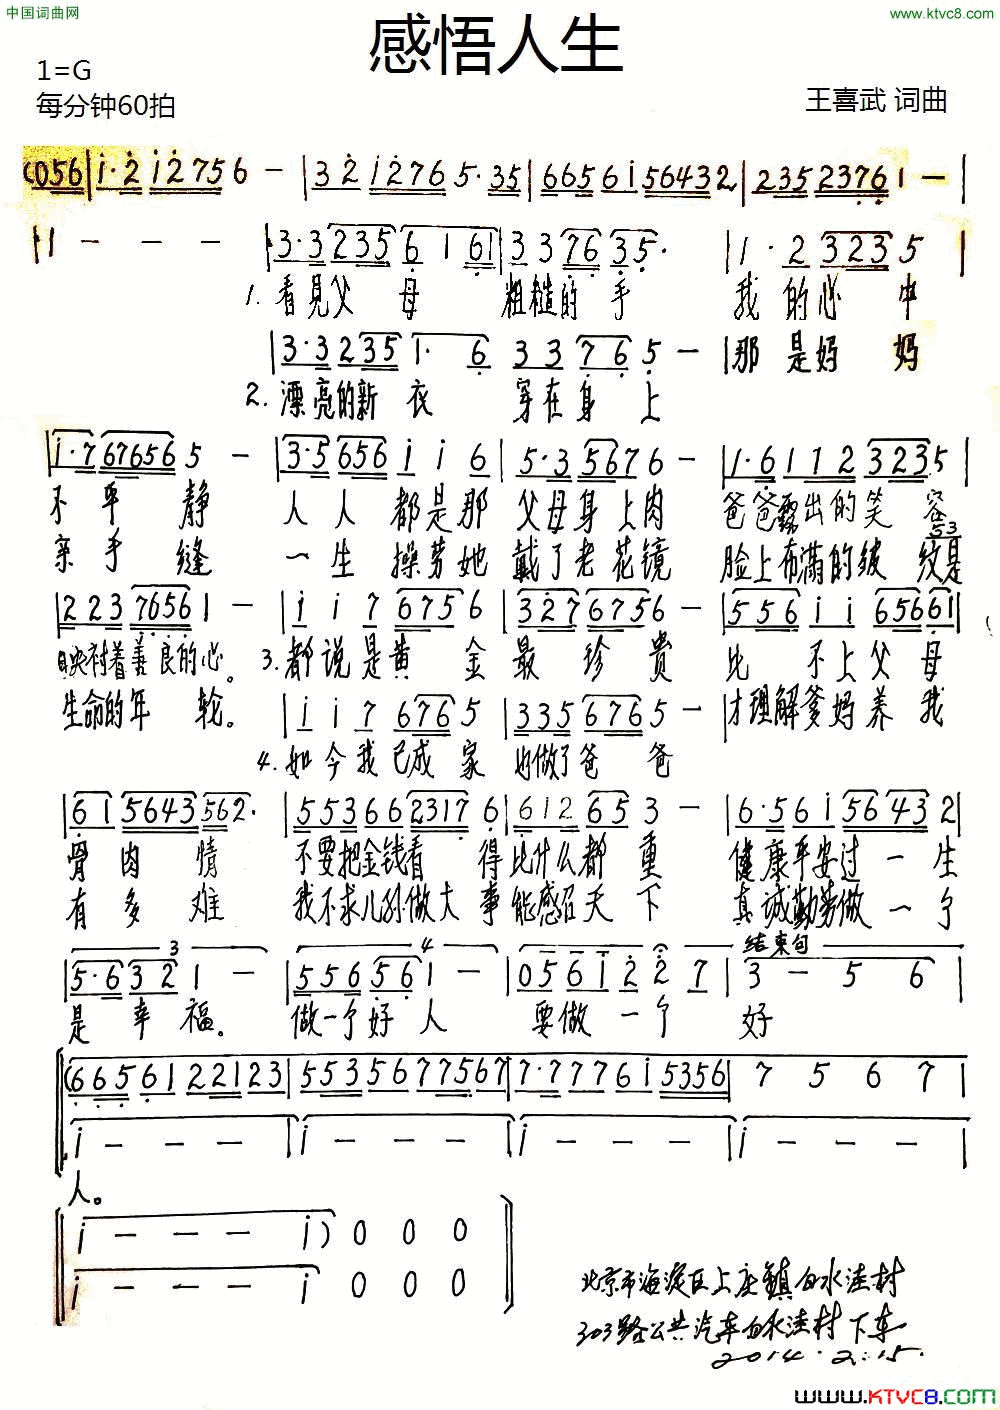 中国词曲网
www.ktvc8.com
感悟人生
1=G
每分钟60拍
王喜武 词曲
(056 | i·2 i2756 - | 32 i276 5·35 | 6656i 56432 | 235 2376 1 - |
1 - - - | 3·3 235 6 1 61 | 3 3 76 3 5· | 1·2 323 5 |
1. 看见父母 粗糙的手 我的心中
| 3·3 235 1· 6 3 3 7 6 5 - | 那是妈妈
2. 漂亮的新衣 穿在身上
| i·7 67656 5 - | 3·5 656 i i 6 | 5·3 567 6 - | 1·6 112 323 5
不平静 人人都是那 父母身上肉 爸爸露出的笑容
53
亲手缝 一生操劳她 戴了老花镜 脸上布满的皱纹是
| 223 7656 1 - | i i 7 675 6 | 327 6756 - | 556 i i 656 61 |
映衬着善良的心。 3. 都说是黄金 最珍贵 比不上父母
生命的年轮。 | i i 7 676 5 | 335 676 5 - | 才理解爹妈养我
4. 如今我已成家 也做了爸爸
| 61 5643 562· | 55366 2317 6 | 612 65 3 - | 6·56i 56 43 2
骨肉情 不要把金钱看得比什么都重 健康平安过一生
有多难 我不求儿孙做大事能感召天下 真诚勤劳做一个
3 4 结束句
| 5·6 32 1 - | 556 56 1 - | 056i 2 2 7 | 3 - 5 6 |
是幸福。 做一个好人 要做一个 好
(6656122123 | 553567 7567 | 7·7776i 5356 | 7 5 6 7 |
i - - - | i - - - | i - - - | i - - - |
人。
i - - - i) 0 0 0
i - - - i 0 0 0
北京市海淀区上庄镇白水洼村
303路公共汽车白水洼村下车
2014.2.15.
www.KTVC8.com